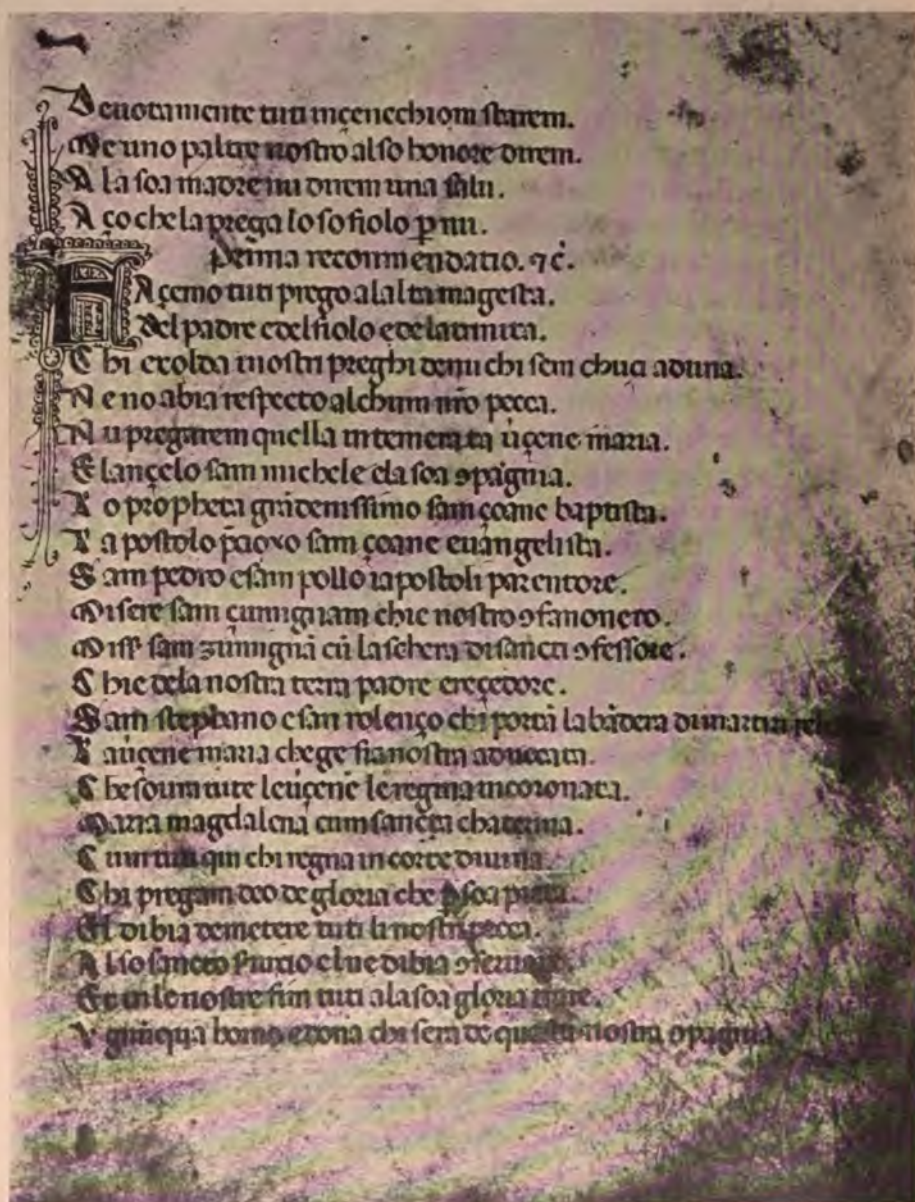 Deuotamente tuti inçenechioni starem.
E uno paltre nostro al so honore direm.
A la soa madre nu direm una salu.
A ço che la prega lo so fiolo p nu.
Prima recommendatio. ⁊ c̄.
FAçemo tuti prego a lalta magesta.
del padre e del fiolo e de la trinita.
Chi exolda i nostri preghi de nu chi sem chua aduna.
Ne no abia respecto alchum nr̄o pecca.
Nu pregarem quella intemerata ùçene maria.
E lançelo sam michele e la soa ꝯpagnia.
Lo propheta grādenissimo sam çoane baptista.
La postolo sam çoane euangelista.
Sam pedro e sam pollo i apostoli parentore.
Misere sam çumignam chi e nostro ꝯfanonero.
Miss̄ sam zumignā cū la schera di sancti ꝯfessore.
Chi e de la nostra terra padre e reçedore.
Sam stephano e san rolenço chi portā la bādera di martiri
La ùçene maria che ge sia nostra aduocata.
Che soura tute le ùçene le regina incoronata.
Maria magdalena cum sancta chaterina.
Cum tuti qui chi regna in corte diuina.
Chi pregam deo de gloria che p soa pieta.
El dibia demetere tuti li nostri pecca.
Al so sancto el ue dibia
Et in le nostre fim tuti a la soa gloria
gūiqua homo e dona chi sera de questa nostra ꝯpagnia